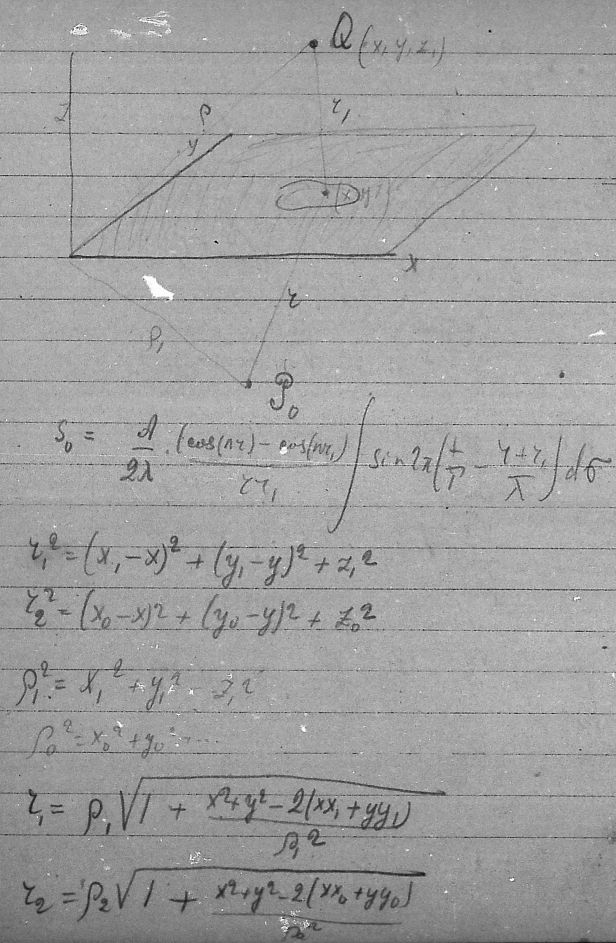 Q (x₁ y₁ z₁)
z
ρ
r₁
y
(x y)
x
r
ρ₁
P₀
S₀ = A/2λ · (cos(nr) - cos(nr₁))/rr₁ ∫ sin 2π(t/T - (r+r₁)/λ) dσ
r₁² = (x₁-x)² + (y₁-y)² + z₁²
r₂² = (x₀-x)² + (y₀-y)² + z₀²
ρ₁² = x₁² + y₁² z₁²
ρ₀² = x₀² + y₀² ...
r₁ = ρ₁ √(1 + (x²+y²-2(xx₁+yy₁))/ρ₁²)
r₂ = ρ₂ √(1 + (x²+y²-2(xx₀+yy₀))/ρ₀²)